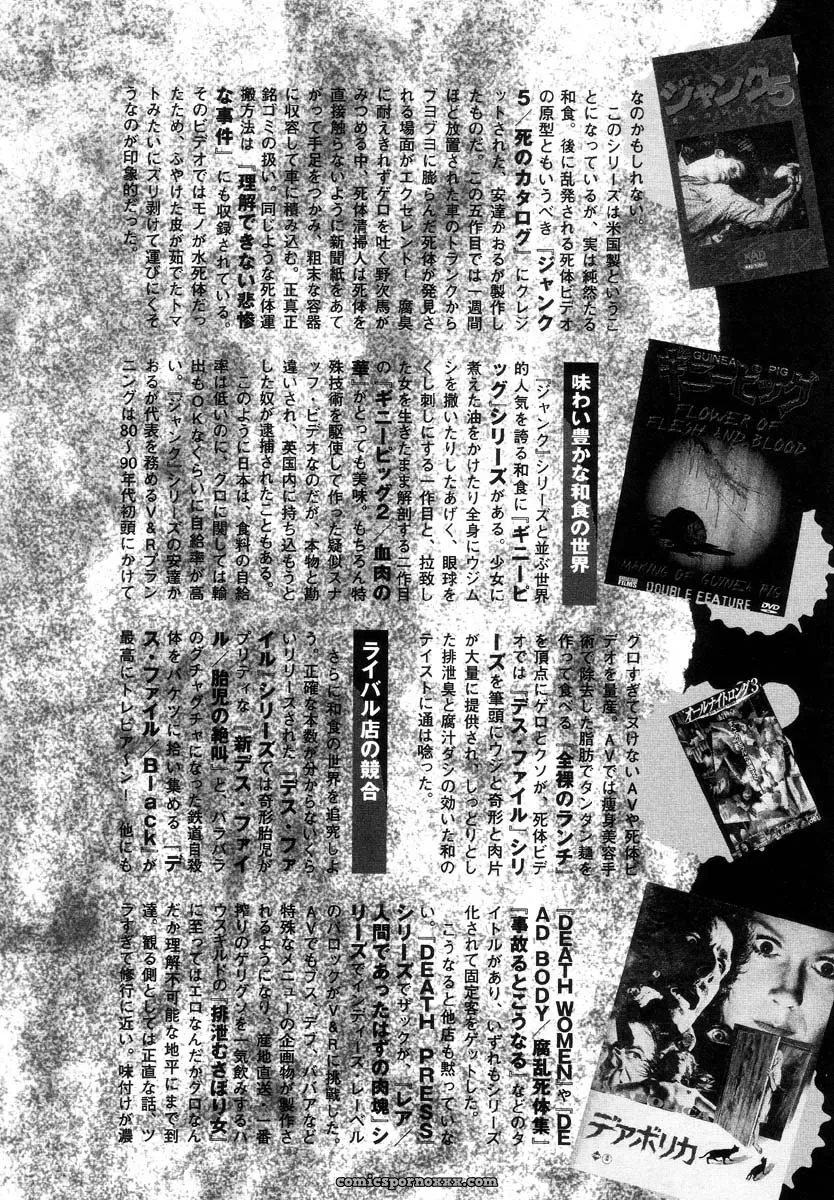 なのかもしれない。
　このシリーズは米国製というこ
とになっているが、実は純然たる
和食。後に乱発される死体ビデオ
の原型ともいうべき『ジャンク
5／死のカタログ』にクレジ
ットされた、安達かおるが製作し
たものだ。この五作目では一週間
ほど放置された車のトランクから
ブヨブヨに膨らんだ死体が発見さ
れる場面がエクセレント！　腐臭
に耐えきれずゲロを吐く野次馬が
みつめる中、死体清掃人は死体を
直接触らないように新聞紙をあて
がって手足をつかみ、粗末な容器
に収容して車に積み込む。正真正
銘ゴミの扱い。同じような死体運
搬方法は『理解できない悲惨
な事件』にも収録されている。
そのビデオではモノが水死体だっ
たため、ふやけた皮が茹でたトマ
トみたいにズリ剥けて運びにくそ
うなのが印象的だった。
味わい豊かな和食の世界
　『ジャンク』シリーズと並ぶ世界
的人気を誇る和食に『ギニーピ
ッグ』シリーズがある。少女に
煮えた油をかけたり全身にウジム
シを撒いたりしたあげく、眼球を
くし刺しにする一作目と、拉致し
た女を生きたまま解剖する二作目
の『ギニーピッグ2／血肉の
華』がとっても美味。もちろん特
殊技術を駆使して作った疑似スナ
ッフ・ビデオなのだが、本物と勘
違いされ、英国内に持ち込もうと
した奴が逮捕されたこともある。
　このように日本は、食料の自給
率は低いのに、グロに関しては輸
出もOKなくらいに自給率が高
い。『ジャンク』シリーズの安達か
おるが代表を務めるV&Rプラン
ニングは80〜90年代初頭にかけて
グロすぎてヌけないAVや死体ビ
デオを量産。AVでは痩身美容手
術で除去した脂肪でタンタン麺を
作って食べる『全裸のランチ』
を頂点にゲロとクソが、死体ビデ
オでは『デス・ファイル』シリ
ーズを筆頭にウジと奇形と肉片
が大量に提供され、しっとりとし
た排泄臭と腐汁ダシの効いた和の
テイストに通は唸った。
ライバル店の競合
　さらに和食の世界を追究しよ
う。正確な本数が分からないくら
いリリースされた『デス・ファ
イル』シリーズでは奇形胎児が
プリティな『新デス・ファイ
ル／胎児の絶叫』と、バラバラ
のグチャグチャになった鉄道自殺
体をバケツに拾い集める『デ
ス・ファイル／Black』が
最高にトレビア〜ン！　他にも
『DEATH WOMEN』や『DE
AD BODY／腐乱死体集』
『事故るとこうなる』などのタ
イトルがあり、いずれもシリーズ
化されて固定客をゲットした。
　こうなると他店も黙っていな
い。『DEATH PRESS』
シリーズでザックが、『レア／
人間であったはずの肉塊』シ
リーズでインディーズ・レーベル
のバロックがV&Rに挑戦した。
AVでもブス、デブ、ババアなど
特殊なメニューの企画物が製作さ
れるようになり、産地直送・一番
搾りのゲリグソを一気飲みするハ
ウスギルドの『排泄むさぼり女』
に至ってはエロなんだかグロなん
だか理解不可能な地平にまで到
達。観る側としては正直な話、ツ
ラすぎて修行に近い。味付けが濃
ジャンク5
GUINEA PIG
ギニーピッグ
FLOWER OF
FLESH AND BLOOD
MAKING OF GUINEA PIG
DOUBLE FEATURE
DVD
オールナイトロング3
デアボリカ
comicspornoxxx.com